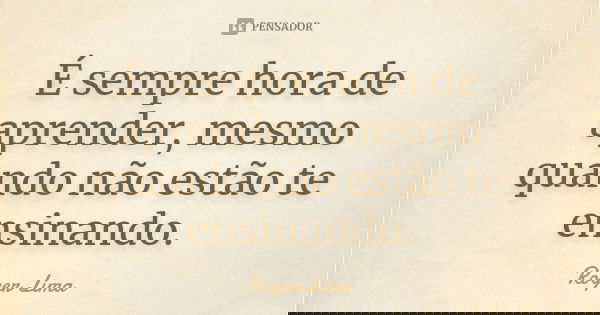 PENSADOR
É sempre hora de
aprender, mesmo
quando não estão te
ensinando.
Roger Lima